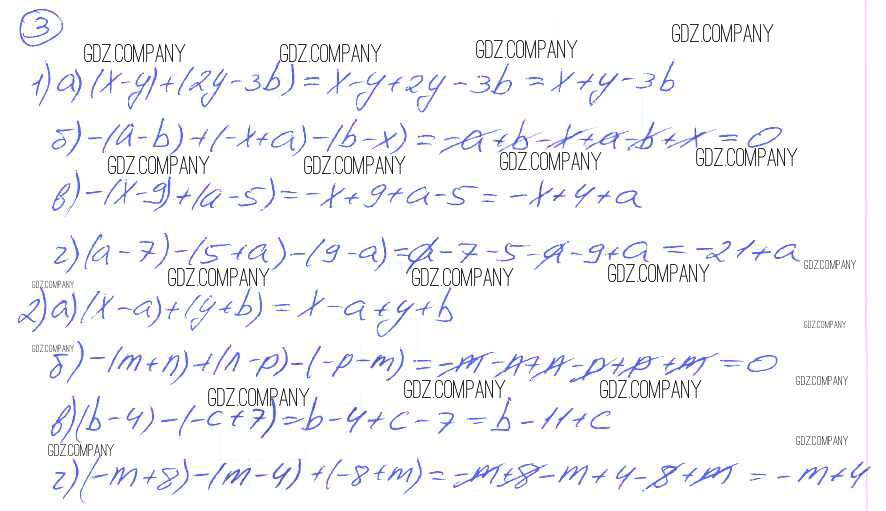 3
GDZ.COMPANY GDZ.COMPANY GDZ.COMPANY GDZ.COMPANY
1) а) (x-y)+(2y-3b)=x-y+2y-3b=x+y-3b
б) -(a-b)+(-x+a)-(b-x)=-a+b-x+a-b+x=0
GDZ.COMPANY GDZ.COMPANY GDZ.COMPANY GDZ.COMPANY
в) -(x-9)+(a-5)=-x+9+a-5=-x+4+a
г) (a-7)-(5+a)-(9-a)=a-7-5-a-9+a=-21+a
GDZ.COMPANY GDZ.COMPANY GDZ.COMPANY GDZ.COMPANY GDZ.COMPANY
2) а) (x-a)+(y+b)=x-a+y+b
GDZ.COMPANY
GDZ.COMPANY
б) -(m+n)+(n-p)-(-p-m)=-m-n+n-p+p+m=0
GDZ.COMPANY GDZ.COMPANY GDZ.COMPANY GDZ.COMPANY
в) (b-4)-(-c+7)=b-4+c-7=b-11+c
GDZ.COMPANY GDZ.COMPANY
г) (-m+8)-(m-4)+(-8+m)=-m+8-m+4-8+m=-m+4